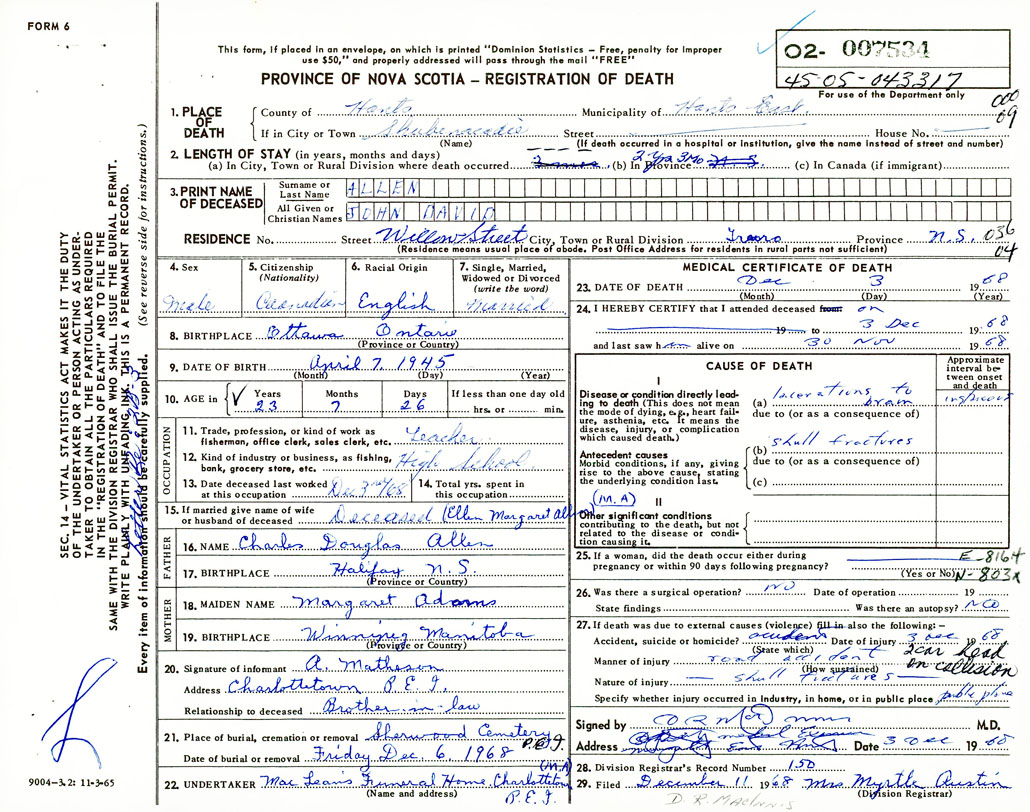 FORM 6
This form, if placed in an envelope, on which is printed "Dominion Statistics – Free, penalty for improper
use $50," and properly addressed will pass through the mail "FREE"
PROVINCE OF NOVA SCOTIA – REGISTRATION OF DEATH
O2- 007534
45-05-043317
For use of the Department only
000
09
1. PLACE OF DEATH
County of Hants Municipality of Hants East
If in City or Town Shubenacadie Street House No.
(Name) (If death occurred in a hospital or institution, give the name instead of street and number)
2. LENGTH OF STAY (in years, months and days)
(a) In City, Town or Rural Division where death occurred (b) In Province 2 Yrs 3 Mo (c) In Canada (if immigrant)
3. PRINT NAME OF DECEASED
Surname or Last Name ALLEN
All Given or Christian Names JOHN DAVID
RESIDENCE No. Street Willow Street City, Town or Rural Division Truro Province N.S. 036
04
(Residence means usual place of abode. Post Office Address for residents in rural parts not sufficient)
4. Sex
Male
5. Citizenship
(Nationality)
Canadian
6. Racial Origin
English
7. Single, Married,
Widowed or Divorced
(write the word)
Married
8. BIRTHPLACE Ottawa Ontario
(Province or Country)
9. DATE OF BIRTH April 7, 1945
(Month) (Day) (Year)
10. AGE in Years Months Days If less than one day old
23 7 26 hrs. or min.
OCCUPATION
11. Trade, profession, or kind of work as
fisherman, office clerk, sales clerk, etc. Teacher
12. Kind of industry or business, as fishing,
bank, grocery store, etc. High School
13. Date deceased last worked
at this occupation Dec 3rd/68
14. Total yrs. spent in
this occupation
15. If married give name of wife
or husband of deceased Deceased (Ellen Margaret Allen
FATHER
16. NAME Charles Douglas Allen
17. BIRTHPLACE Halifax N.S.
(Province or Country)
MOTHER
18. MAIDEN NAME Margaret Adams
19. BIRTHPLACE Winnipeg Manitoba
(Province or Country)
20. Signature of informant A. Matheson
Address Charlottetown P.E.I.
Relationship to deceased Brother-in-law
21. Place of burial, cremation or removal Sherwood Cemetery
P.E.I.
Date of burial or removal Friday Dec 6, 1968
(M.A)
22. UNDERTAKER MacLean's Funeral Home, Charlottetown
(Name and address) P.E.I.
MEDICAL CERTIFICATE OF DEATH
23. DATE OF DEATH Dec 3 1968
(Month) (Day) (Year)
24. I HEREBY CERTIFY that I attended deceased from: on
19 to 3 Dec 1968
and last saw h alive on 30 Nov 1968
CAUSE OF DEATH
Approximate
interval be-
tween onset
and death
I
Disease or condition directly lead-
ing to death (This does not mean
the mode of dying, e.g., heart fail-
ure, asthenia, etc. It means the
disease, injury, or complication
which caused death.)
(a) lacerations to
brain
due to (or as a consequence of)
Antecedent causes
Morbid conditions, if any, giving
rise to the above cause, stating
the underlying condition last.
(b) skull fractures
due to (or as a consequence of)
(c)
(M.A)
II
Other significant conditions
contributing to the death, but not
related to the disease or condi-
tion causing it.
25. If a woman, did the death occur either during
pregnancy or within 90 days following pregnancy?
(Yes or No)
E-8164
N-803x
26. Was there a surgical operation? NO Date of operation 19
State findings Was there an autopsy? NO
27. If death was due to external causes (violence) fill in also the following:–
Accident, suicide or homicide? accident Date of injury 3 Dec 1968
(State which)
Manner of injury road accident 2 car head
on collision
(How sustained)
Nature of injury skull fractures
Specify whether injury occurred in industry, in home, or in public place public place
Signed by M.D.
Address Date 3 Dec 1968
28. Division Registrar's Record Number 150
29. Filed December 11 1968 Mrs Myrtle Austin
(Division Registrar)
D.R. MacInnis
SEC. 14 – VITAL STATISTICS ACT MAKES IT THE DUTY
OF THE UNDERTAKER OR PERSON ACTING AS UNDER-
TAKER TO OBTAIN ALL THE PARTICULARS REQUIRED
IN THE "REGISTRATION OF DEATH" AND TO FILE THE
SAME WITH THE DIVISION REGISTRAR WHO SHALL ISSUE THE BURIAL PERMIT.
WRITE PLAINLY WITH UNFADING INK. THIS IS A PERMANENT RECORD.
Every item of information should be carefully supplied. (See reverse side for instructions.)
9004-3.2: 11-3-65